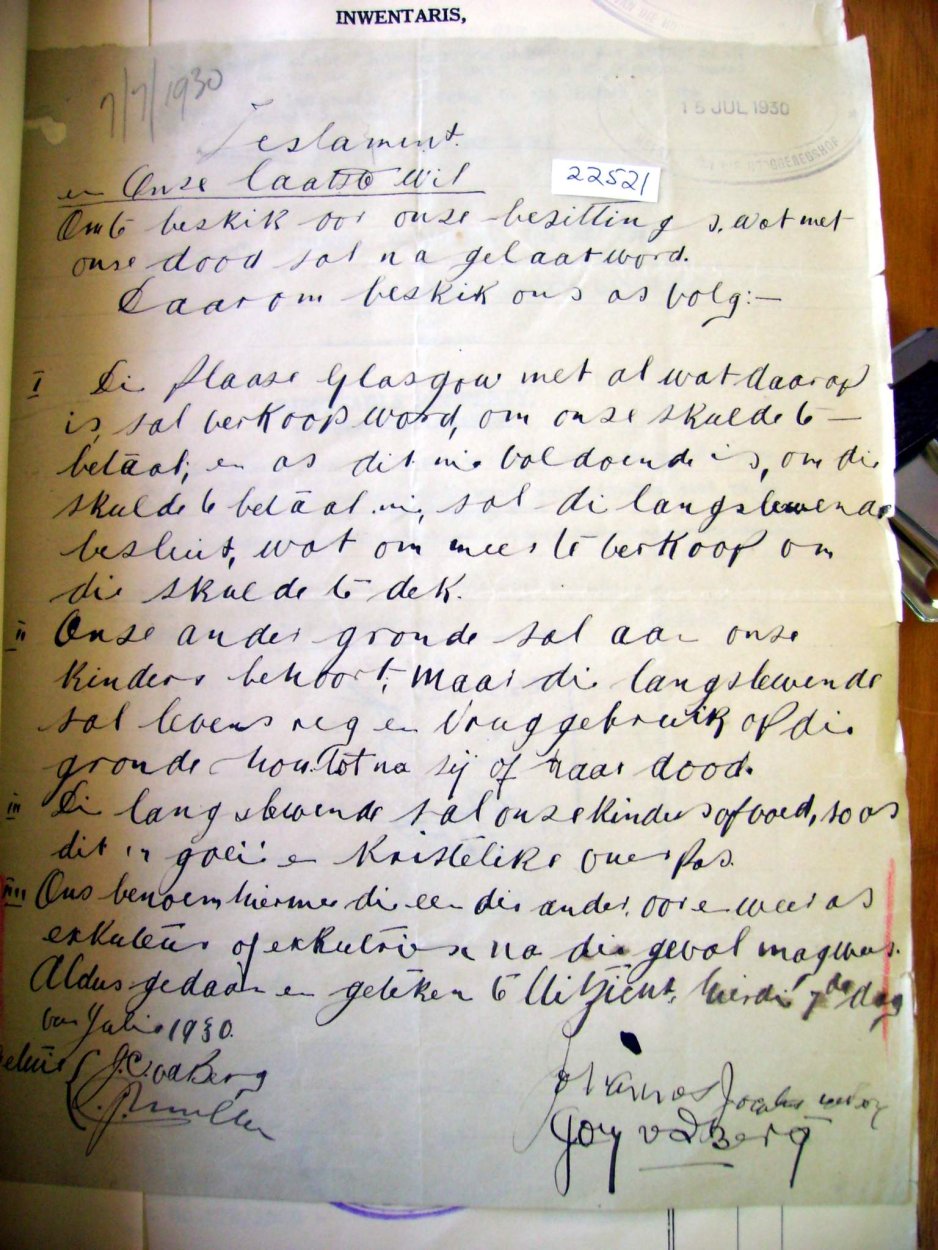 INWENTARIS,
7/7/1930
15 JUL 1930
Testament.
en Onze laatste Wil
22521
Omte beskik oor onze besitting s, wat met
onse dood sal na gelaat word.
Daarom beskik ons as volg:—
I Di plaase Glasgow met al wat daarop
is, sal verkoop word, om onze skulde te—
betáal; en as dit nie voldoende is, om die
skulde te betáal nie, sal di langslewende
besluit, wat om meer te verkoop om
die skulde te dek.
II Onze ander gronde sal aan onze
kinders behoort; maar die langslewende
sal levens reg en Vruggebruik op die
gronde hou tot na sij of haar dood.
III Di langslewende sal onze kinders opvoed, so as
dit 'n goeie en Kristelike ouer pas.
IIII Ons benoem hiermee die een die ander oor en weer as
ekkuteur of ekkutriese na die geval mag wees.
Aldus gedaan en geteken te Uitzicht, hierdi 7de dag
van Julie 1930.
J.C. vd Berg
Johannes Jacobus
v d Berg